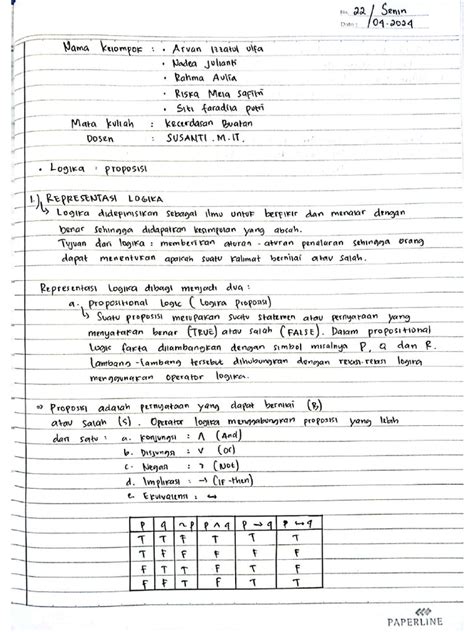 No. 22 / Senin
Date : / 04 - 2024
Nama Kelompok : • Arvan Izzatul ulfa
• Nadea Julianti
• Rahma Aulia
• Riska Meia Safitri
• Siti faradila putri
Mata kuliah : Kecerdasan Buatan
Dosen : SUSANTI . M . IT .
• Logika proposisi
1.) REPRESENTASI LOGIKA
↳ Logika didefinisikan sebagai ilmu untuk berfikir dan menalar dengan
benar sehingga didapatkan kesimpulan yang absah.
Tujuan dari logika : memberikan aturan - aturan penalaran sehingga orang
dapat menentukan apakah suatu kalimat bernilai atau salah.
Representasi Logika dibagi menjadi dua :
a. propositional logic ( Logika Proposisi )
↳ Suatu proposisi merupakan suatu statemen atau pernyataan yang
menyatakan benar (TRUE) atau salah (FALSE). Dalam propositional
logic fakta dilambangkan dengan simbol misalnya P, Q dan R.
Lambang - lambang tersebut dihubungkan dengan relasi-relasi logika
menggunakan operator logika.
⇒ Proposisi adalah pernyataan yang dapat bernilai (B)
atau salah (S). Operator logika menggabungkan proposisi yang lebih
dari satu : a. konjungsi : ∧ (And)
b. Disjungsi : ∨ (Or)
c. Negasi : ¬ (Not)
d. Implikasi : → (IF-then)
e. Ekuivalensi : ↔
P q ~p p ∧ q p → q p ↔ q
T T F T T T
T F F F F F
F T T F T F
F F T F T T
PAPERLINE